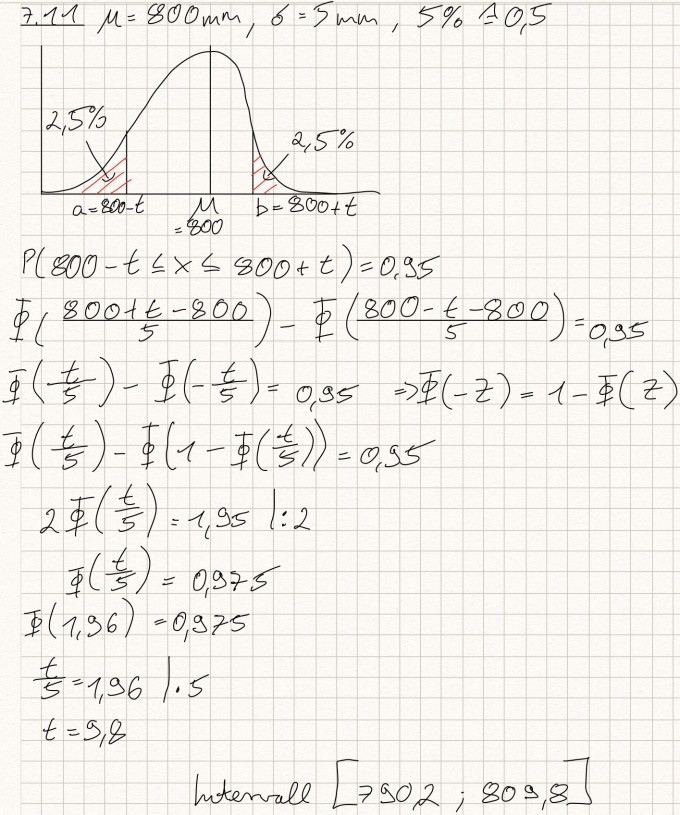 7.11 μ = 800mm, σ = 5mm, 5% ≙ 0,5
2,5%
2,5%
a = 800-t
μ
= 800
b = 800+t
P(800 - t ≤ x ≤ 800 + t) = 0,95
Φ((800+t-800)/5) - Φ((800-t-800)/5) = 0,95
Φ(t/5) - Φ(-t/5) = 0,95 ⇒ Φ(-z) = 1 - Φ(z)
Φ(t/5) - Φ(1 - Φ(t/5)) = 0,95
2Φ(t/5) = 1,95 |:2
Φ(t/5) = 0,975
Φ(1,96) = 0,975
t/5 = 1,96 |·5
t = 9,8
Intervall [790,2 ; 809,8]